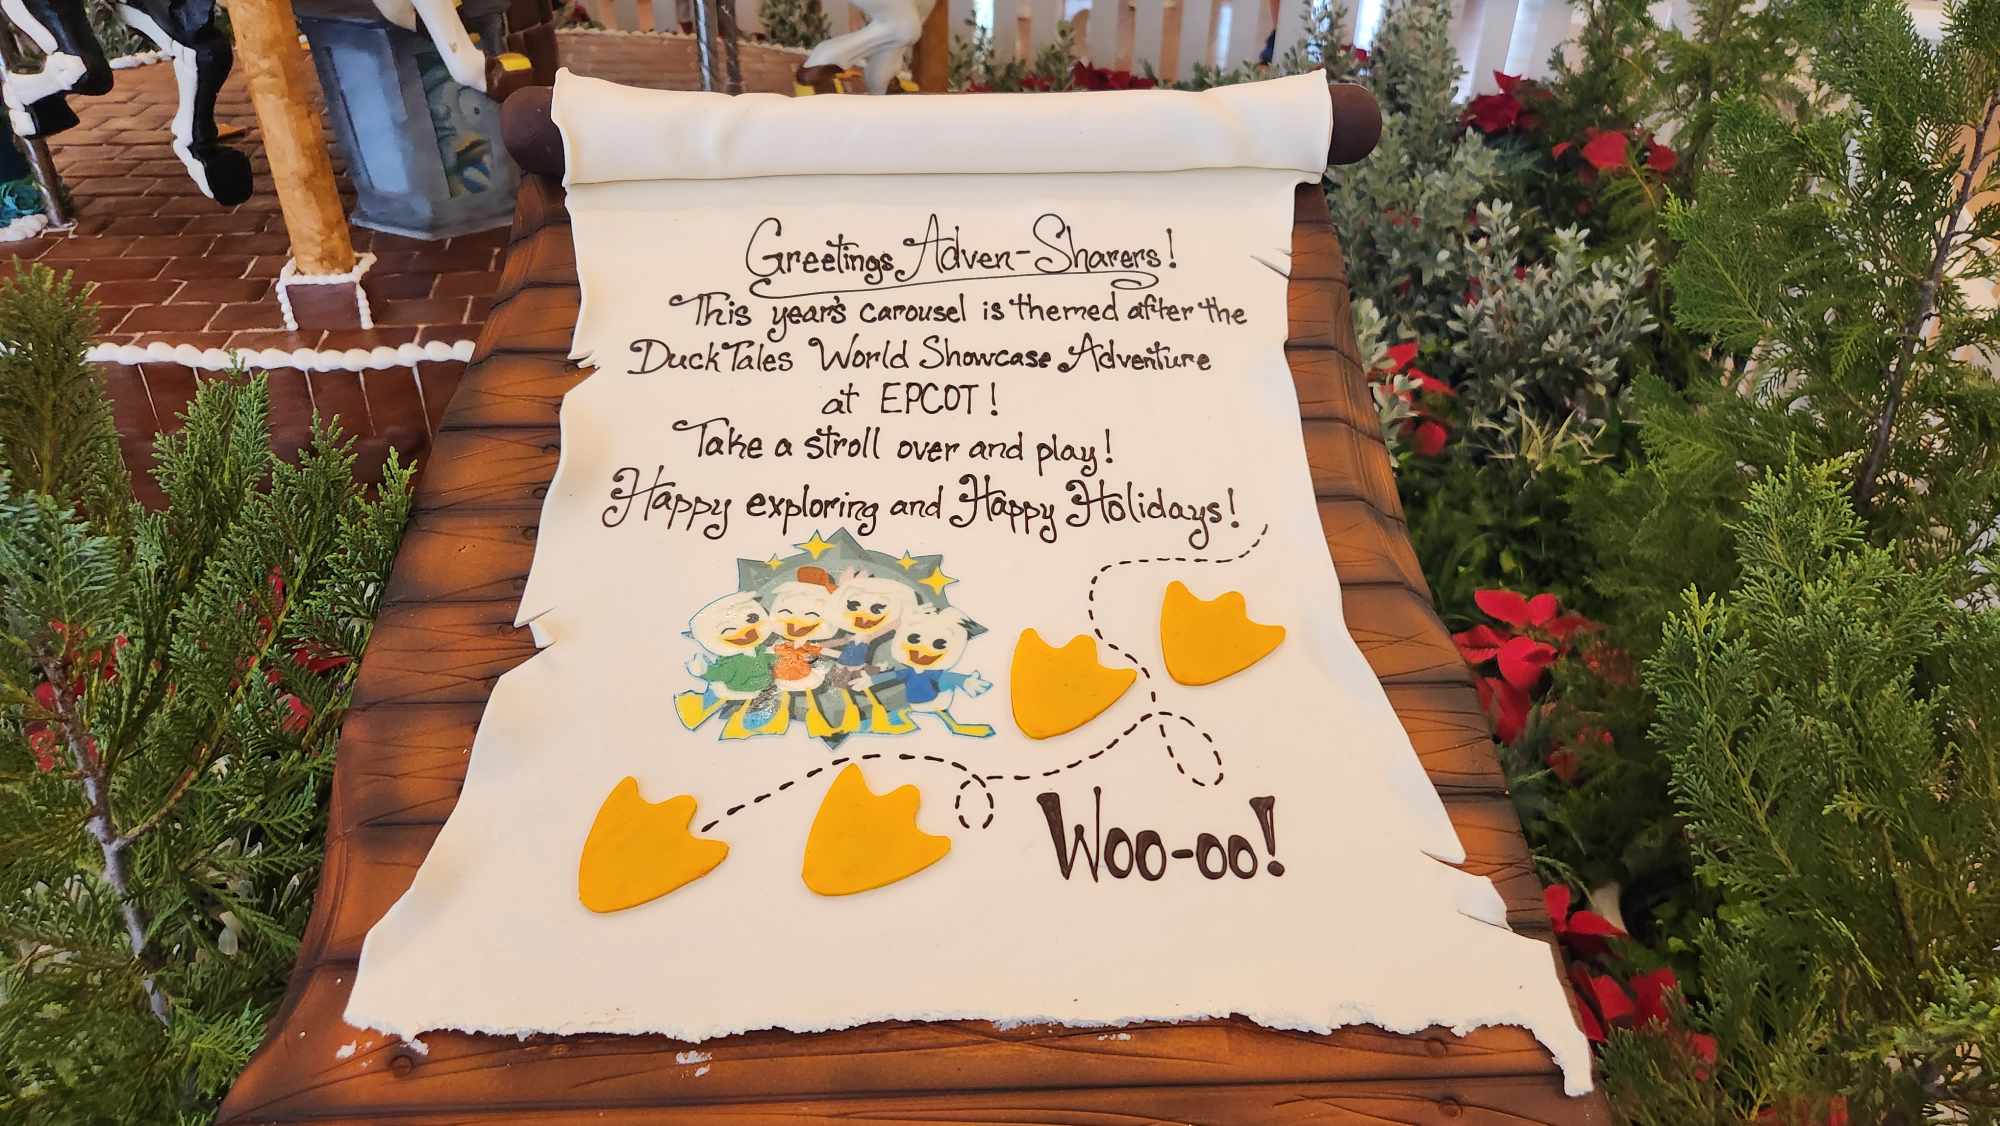 Greetings Adven-Sharers!
This year's carousel is themed after the
DuckTales World Showcase Adventure
at EPCOT!
Take a stroll over and play!
Happy exploring and Happy Holidays!
Woo-oo!